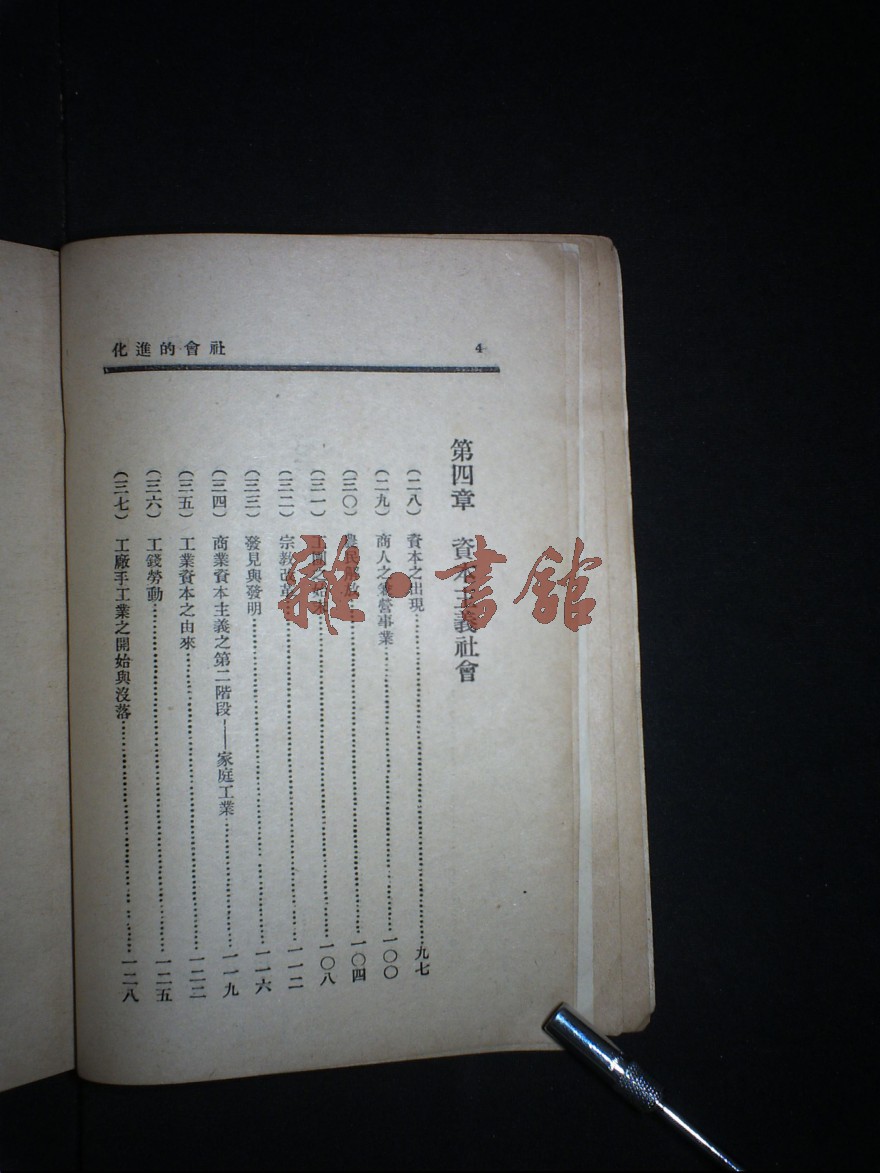 社會的進化
4
第四章 資本主義社會
(二八) 資本之出現……九七
(二九) 商人之兼營事業……一〇〇
(三〇) 農民解放……一〇四
(三一) 工圓之始……一〇八
(三二) 宗教改革……一一二
(三三) 發見與發明……一一六
(三四) 商業資本主義之第二階段——家庭工業……一一九
(三五) 工業資本之由來……一二二
(三六) 工錢勞動……一二五
(三七) 工廠手工業之開始與沒落……一二八
雜·書館